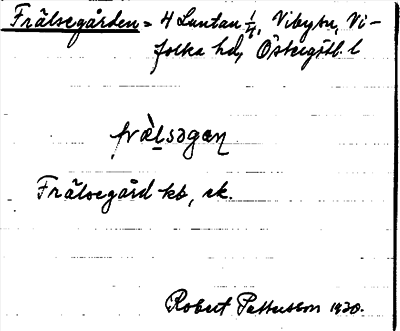 Frälsegården = 4 Luntan 1/4, Viby sn, Vi-
folka hd, Östergötl. l
frälsəgaɳ
Frälsegård kb, sk.
Robert Pettersson 1930.